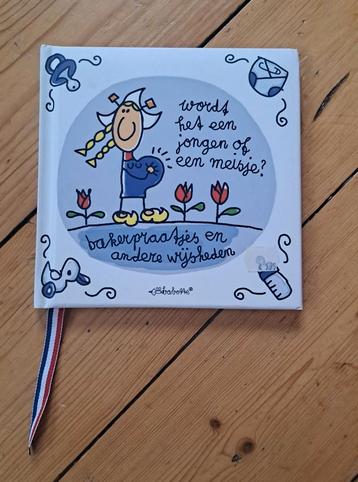 wordt
het een
jongen of
een meisje?
bakerpraatjes en
andere wijsheden